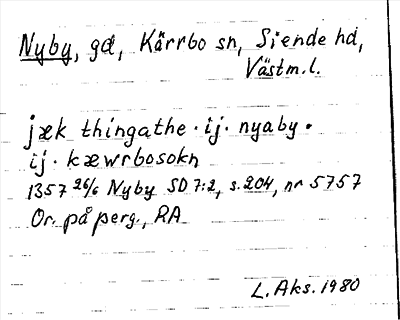 Nyby, gd, Kärrbo sn, Siende hd,
Västm.l.
jæk thingathe · ij · nyaby ·
ij · kæwrbosokn
1357 26/6 Nyby SD 7:2, s. 204, nr 5757
Or. på perg., RA
L. Aks. 1980